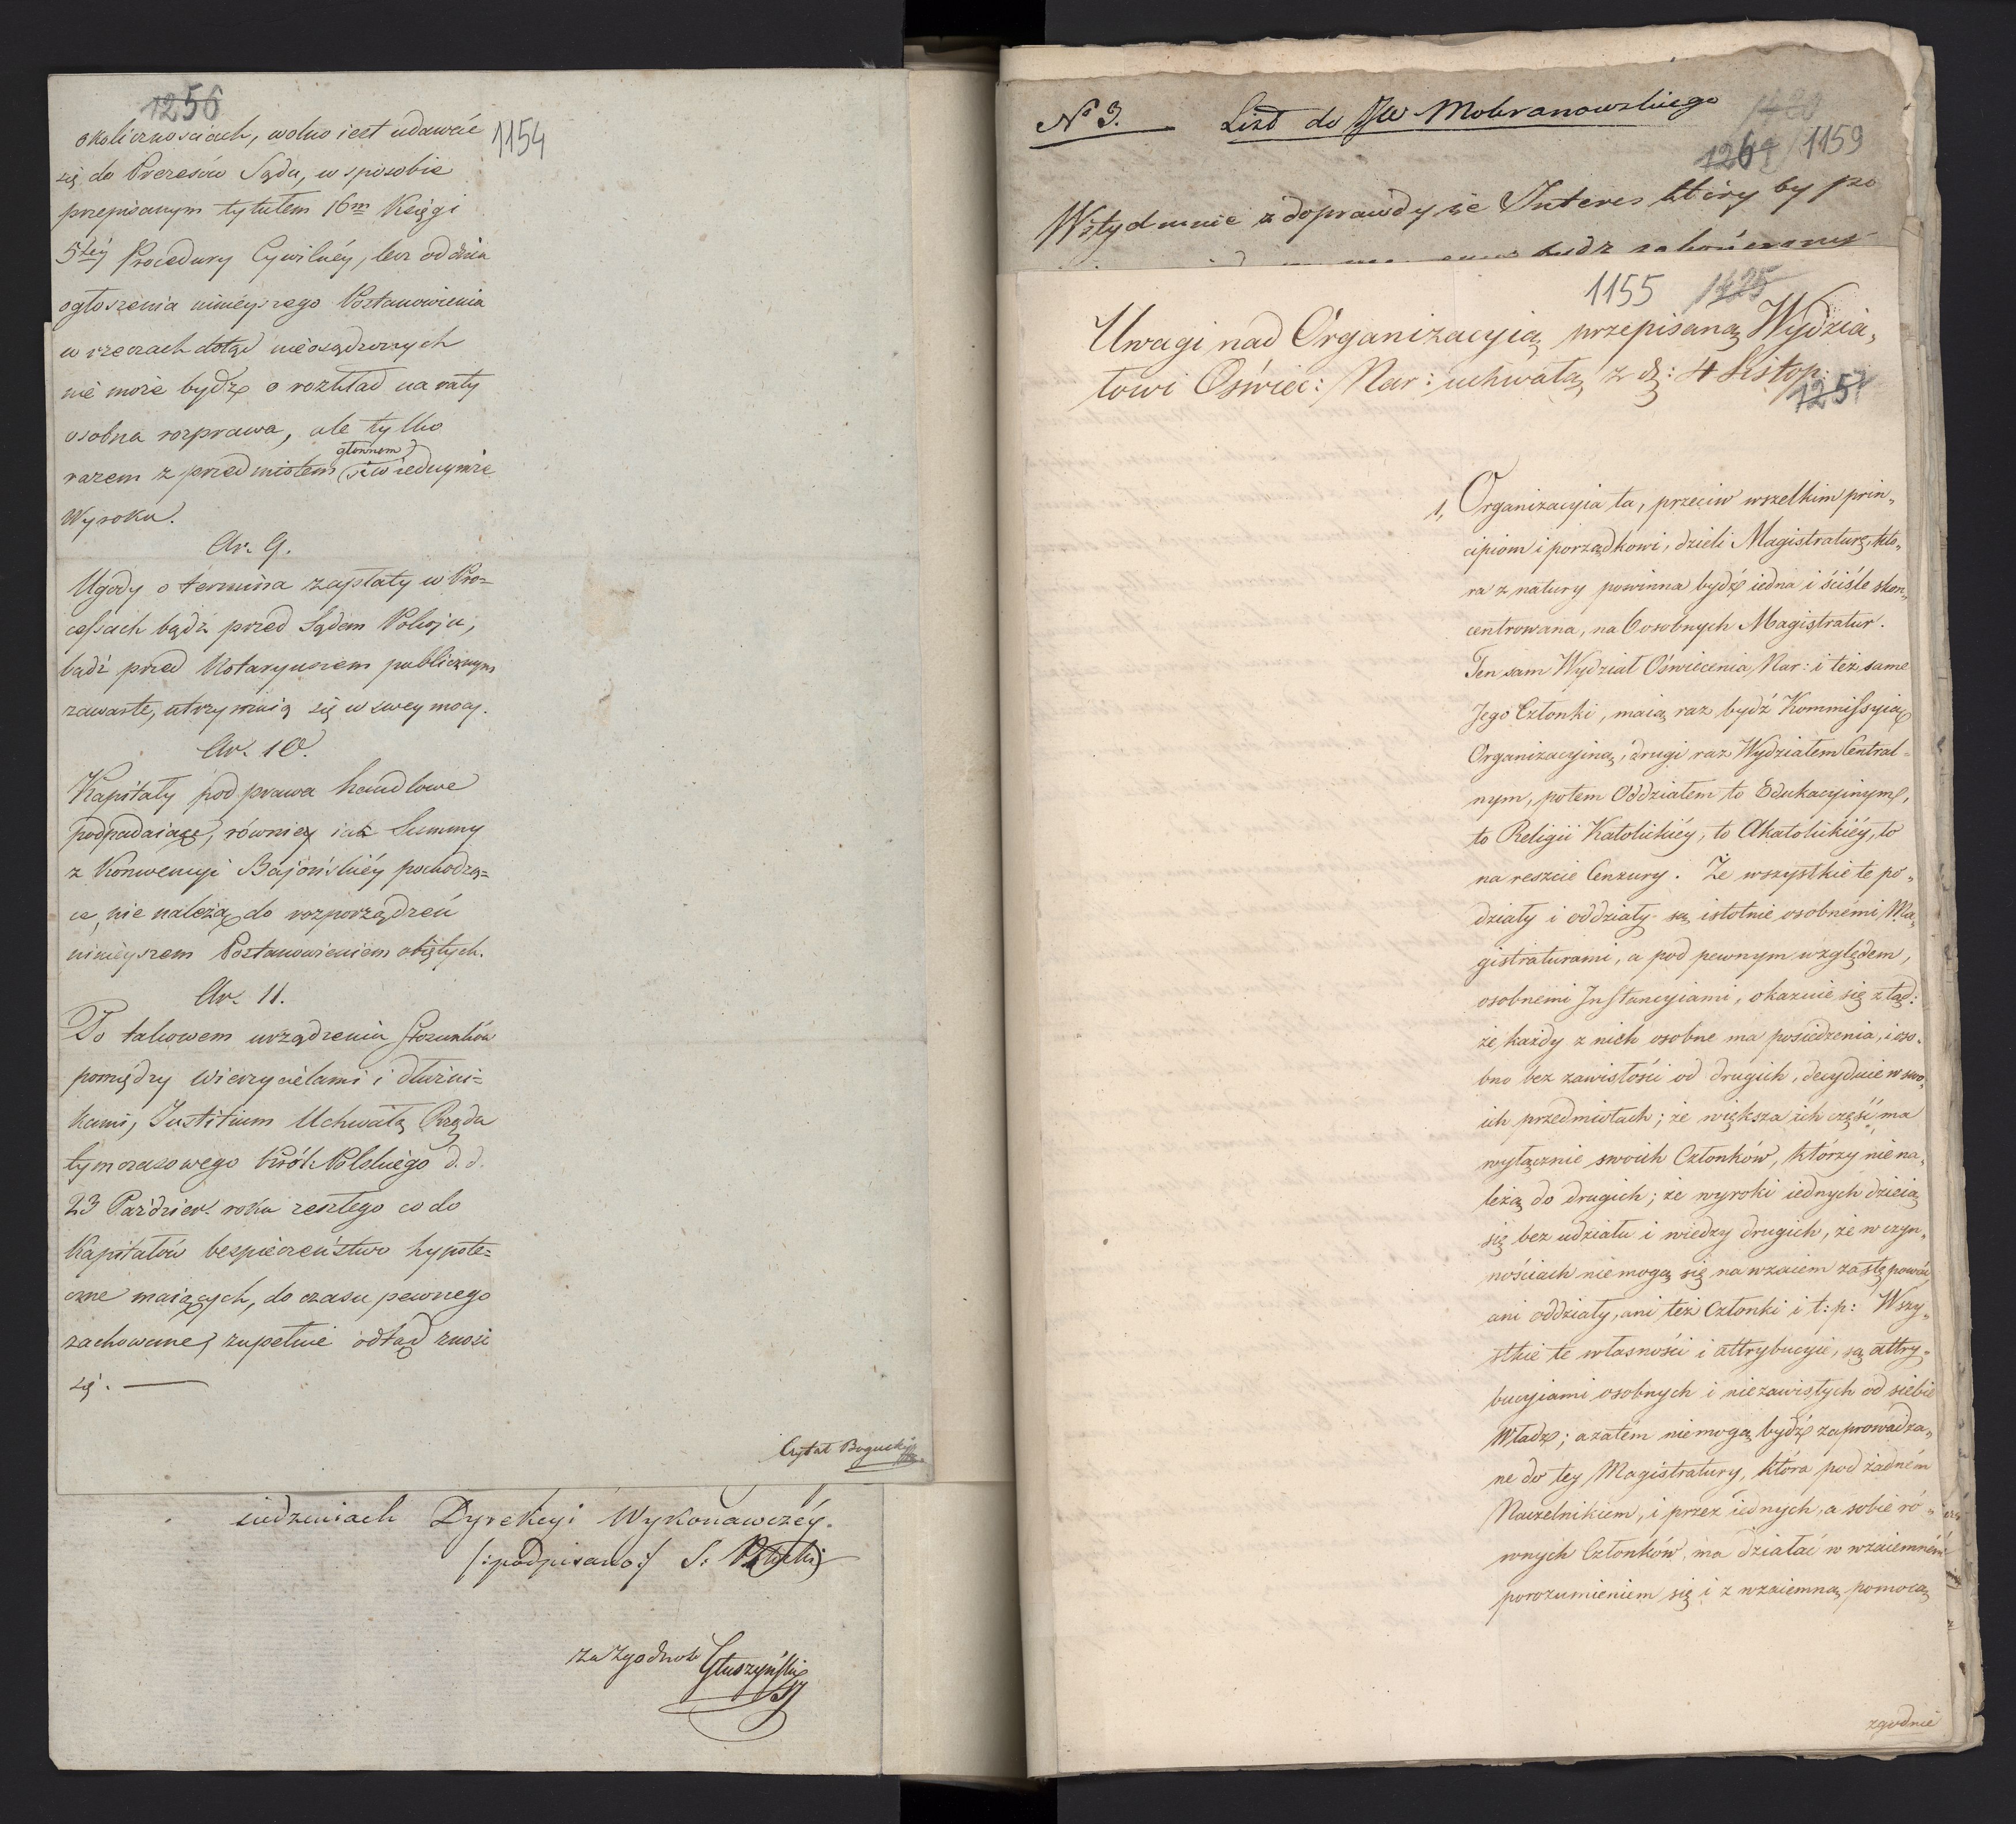 1256
1154
okolicznościach, wolno iest udawać
się do Prezesów Sądu, w sposobie
przepisanym tytułem 16m Księgi
5téy Procedury Cywilnéy, lecz od dnia
ogłoszenia ninieyszego Postanowienia
w rzeczach dotąd nieosądzonych
nie może bydź o rozkład na raty
osobna rozprawa, ale tylko
głównem
razem z przedmiotem i w iednymże
Wyroku.
Ar. 9.
Ugody o termina zapłaty w Pro=
cessach bądź przed Sądem Pokoju,
bądź przed Notaryuszem publicznym
zawarte, utrzymuią się w swey mocy.
Ar. 10.
Kapitały pod prawa handlowe
podpadaiące, równiey iak Summy
z Konwencyi Bajońskiéy pochodzą=
ce, nie należą do rozporządzeń
ninieyszem Postanowieniem obiętych.
Ar. 11.
Po takowem urządzeniu Stosunków
pomiędzy Wierzycielami i dłużni=
kami, Justitium Uchwałą Rządu
tymczasowego Król: Polskiego d. d.
23 Paździer. roku zeszłego co do
Kapitałów bespieczeństwo hypote=
czne maiących, do czasu pewnego
zachowane, zupełnie odtąd znosi
się. —
Czytał Bogucki
iedzeniach Dyrekcyi Wykonawczéy.
/:podpisano:/ S:
Za zgodność Głuszyński
N° 3. List do JW Mokranowskiego
1264 1159
Wstyd mnie zdoprawdy że Interes który by po
bydź zakończony
1155 1425
Uwagi nad Organizacyią przepisaną Wydzia„
łowi Oświec: Nar: uchwałą z d: 4 Listop:
1257
1, Organizacyia ta, przeciw wszelkim prin„
cipiom i porządkowi, dzieli Magistraturę, któ„
ra z natury powinna bydź iedna i ściśle skon„
centrowana, na 6 osobnych Magistratur.
Ten sam Wydział Oświecenia Nar: i też same
Jego Członki, maią raz bydź Kommissyią
Organizacyiną, drugi raz Wydziałem Central=
nym, potem Oddziałem to Edukacyinym,
to Religii Katolickiéy, to Akatolickiéy, to
na reszcie Cenzury. Że wszystkie te po„
działy i oddziały są istotnie osobnémi Ma„
gistraturami, a pod pewnym względem,
osobnemi Instancyiami, okazuie się ztąd:
że każdy z nich osobne ma posiedzenia, i oso„
bno bez zawisłości od drugich, decyduie w swo„
ich przedmiotach; że większa ich część ma
wyłącznie swoich Członków, którzy nie na„
leżą do drugich; że wyroki iednych dzieią
się bez udziału i wiedzy drugich, że w czyn„
nościach nie mogą się nawzaiem zastępować,
ani oddziały, ani też Członki i t: p: Wszy„
stkie te własności i attrybucyie, są attry„
bucyiami osobnych i niezawisłych od siebie
Władz; a zatém nie mogą bydź zaprowadza„
ne do tey Magistratury, która pod żadném
Naczelnikiem, i przez iednych, a sobie ró„
wnych Członków, ma działać w wzaiemném
porozumieniem się i z wzaiemną pomocą
zgodnie